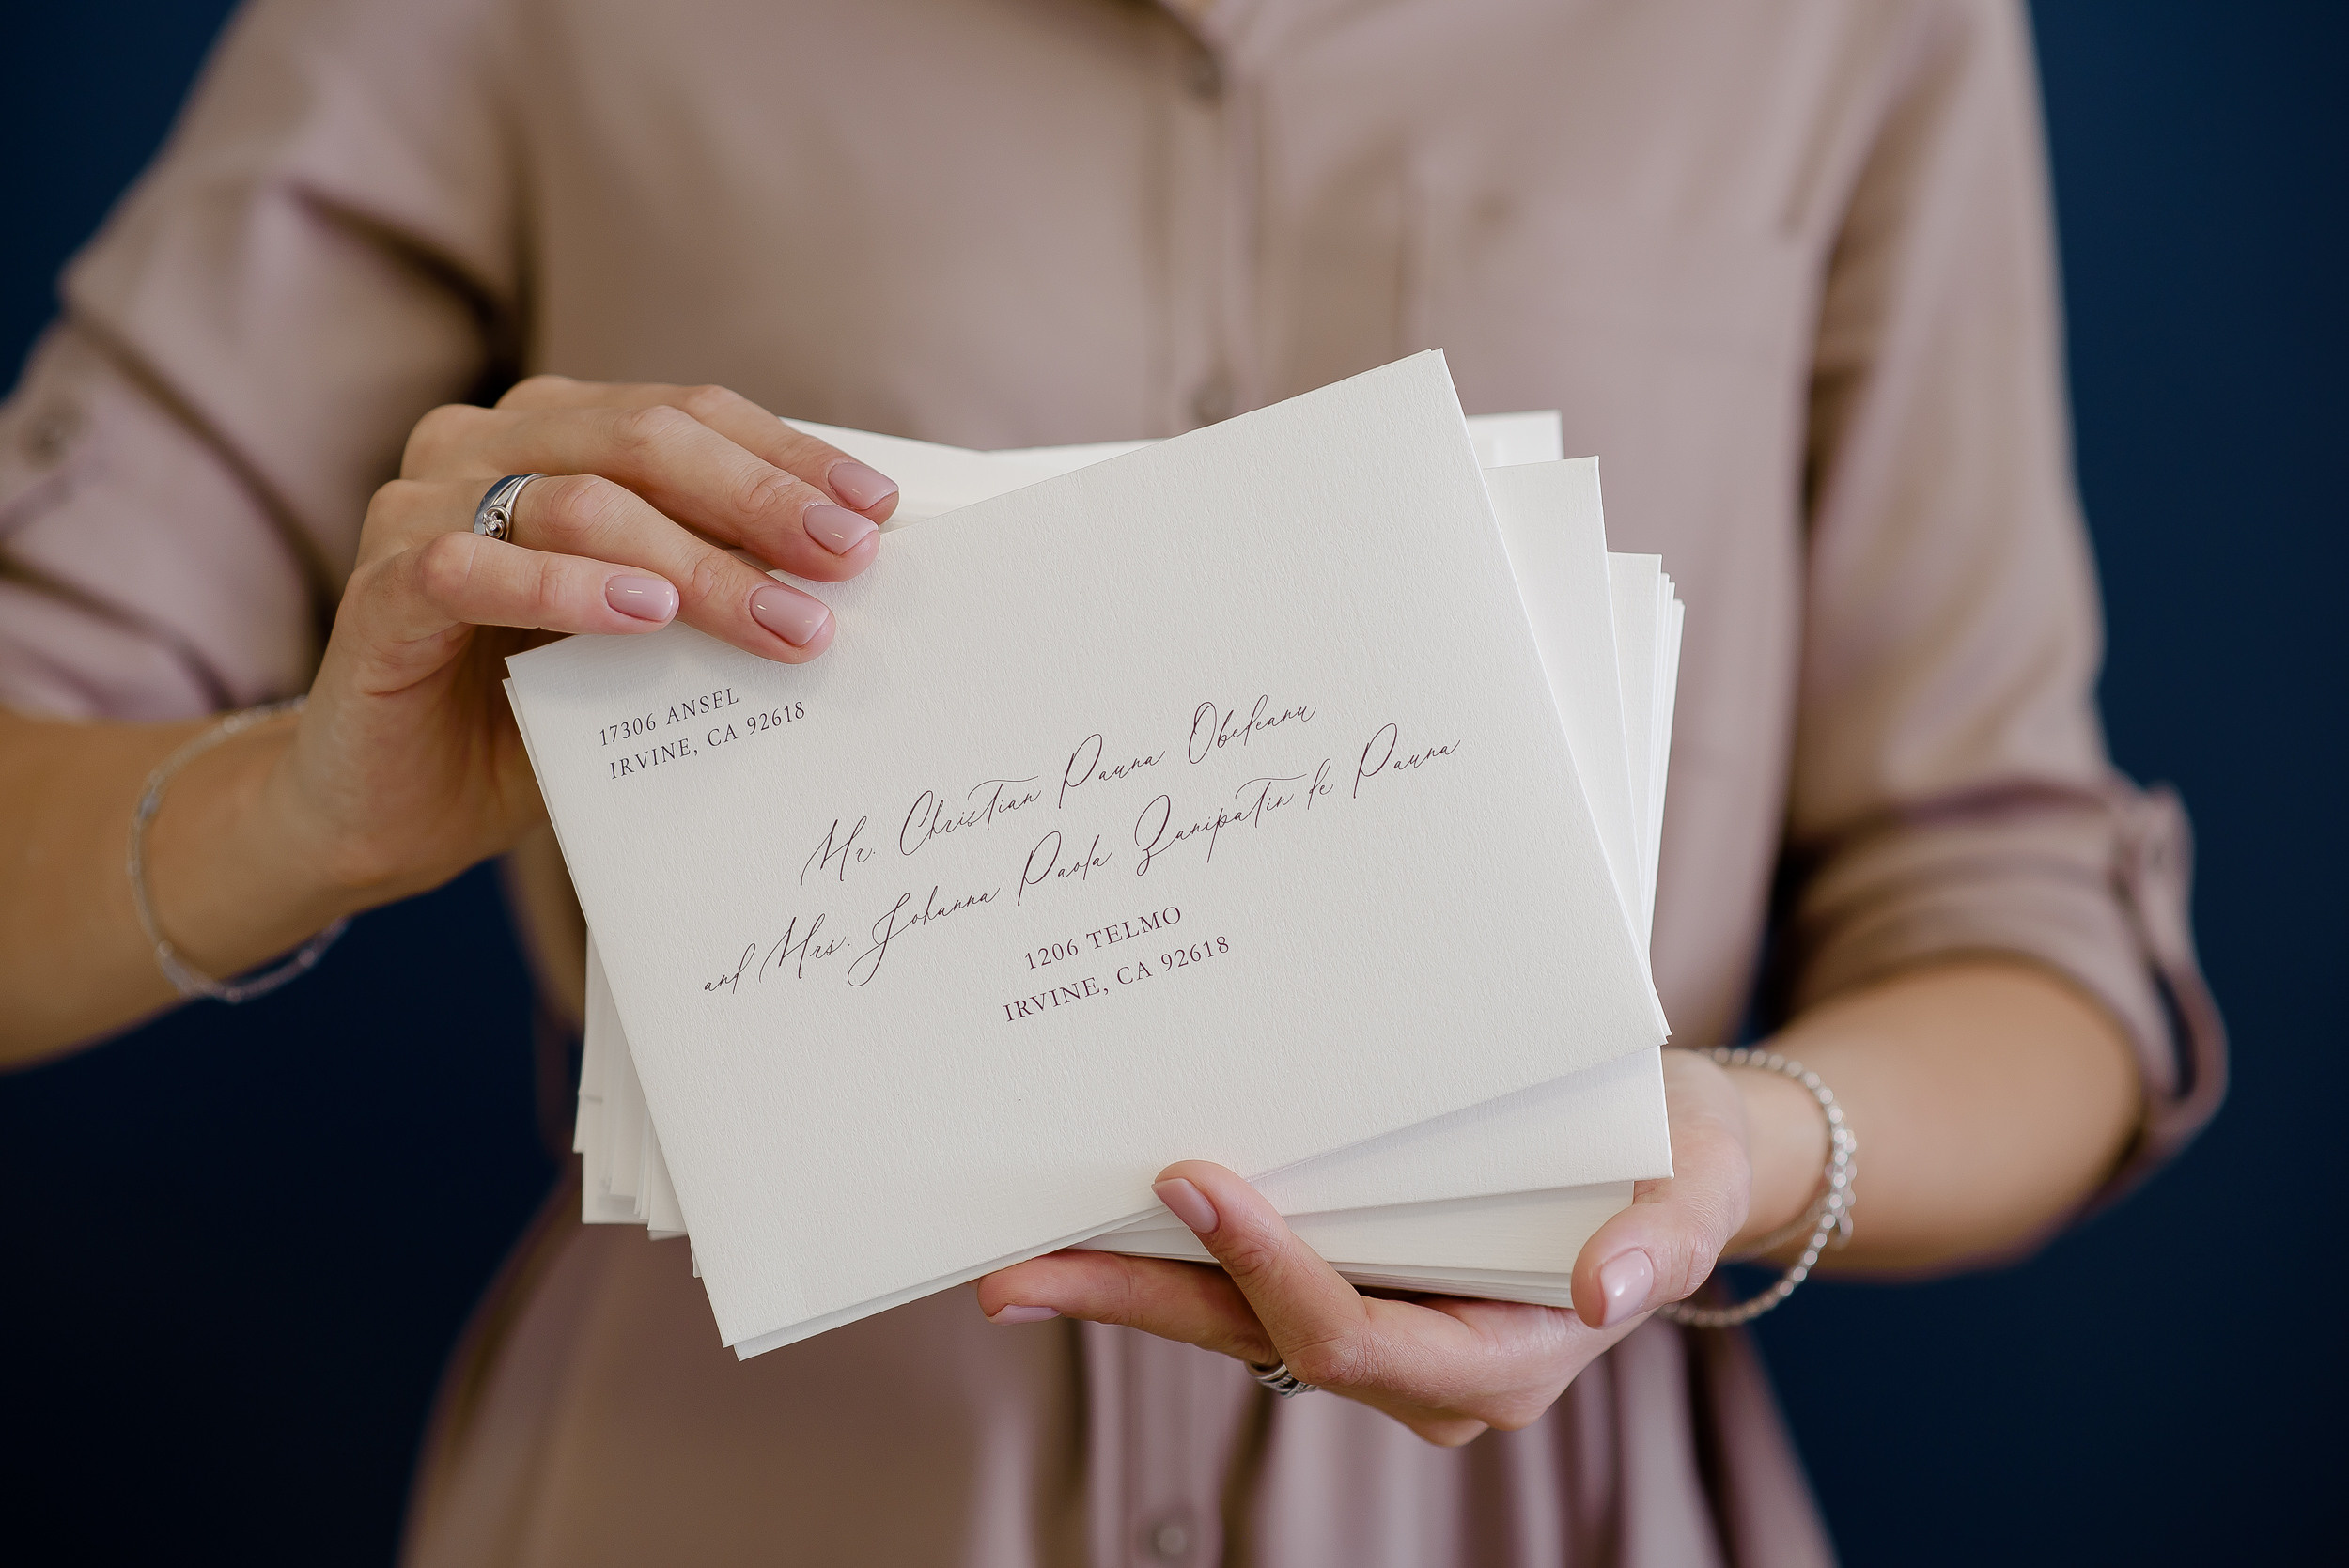 17306 ANSEL
IRVINE, CA 92618
Mr. Christian Pauna Obedeanu
and Mrs. Johanna Paola Zanipatin de Pauna
1206 TELMO
IRVINE, CA 92618